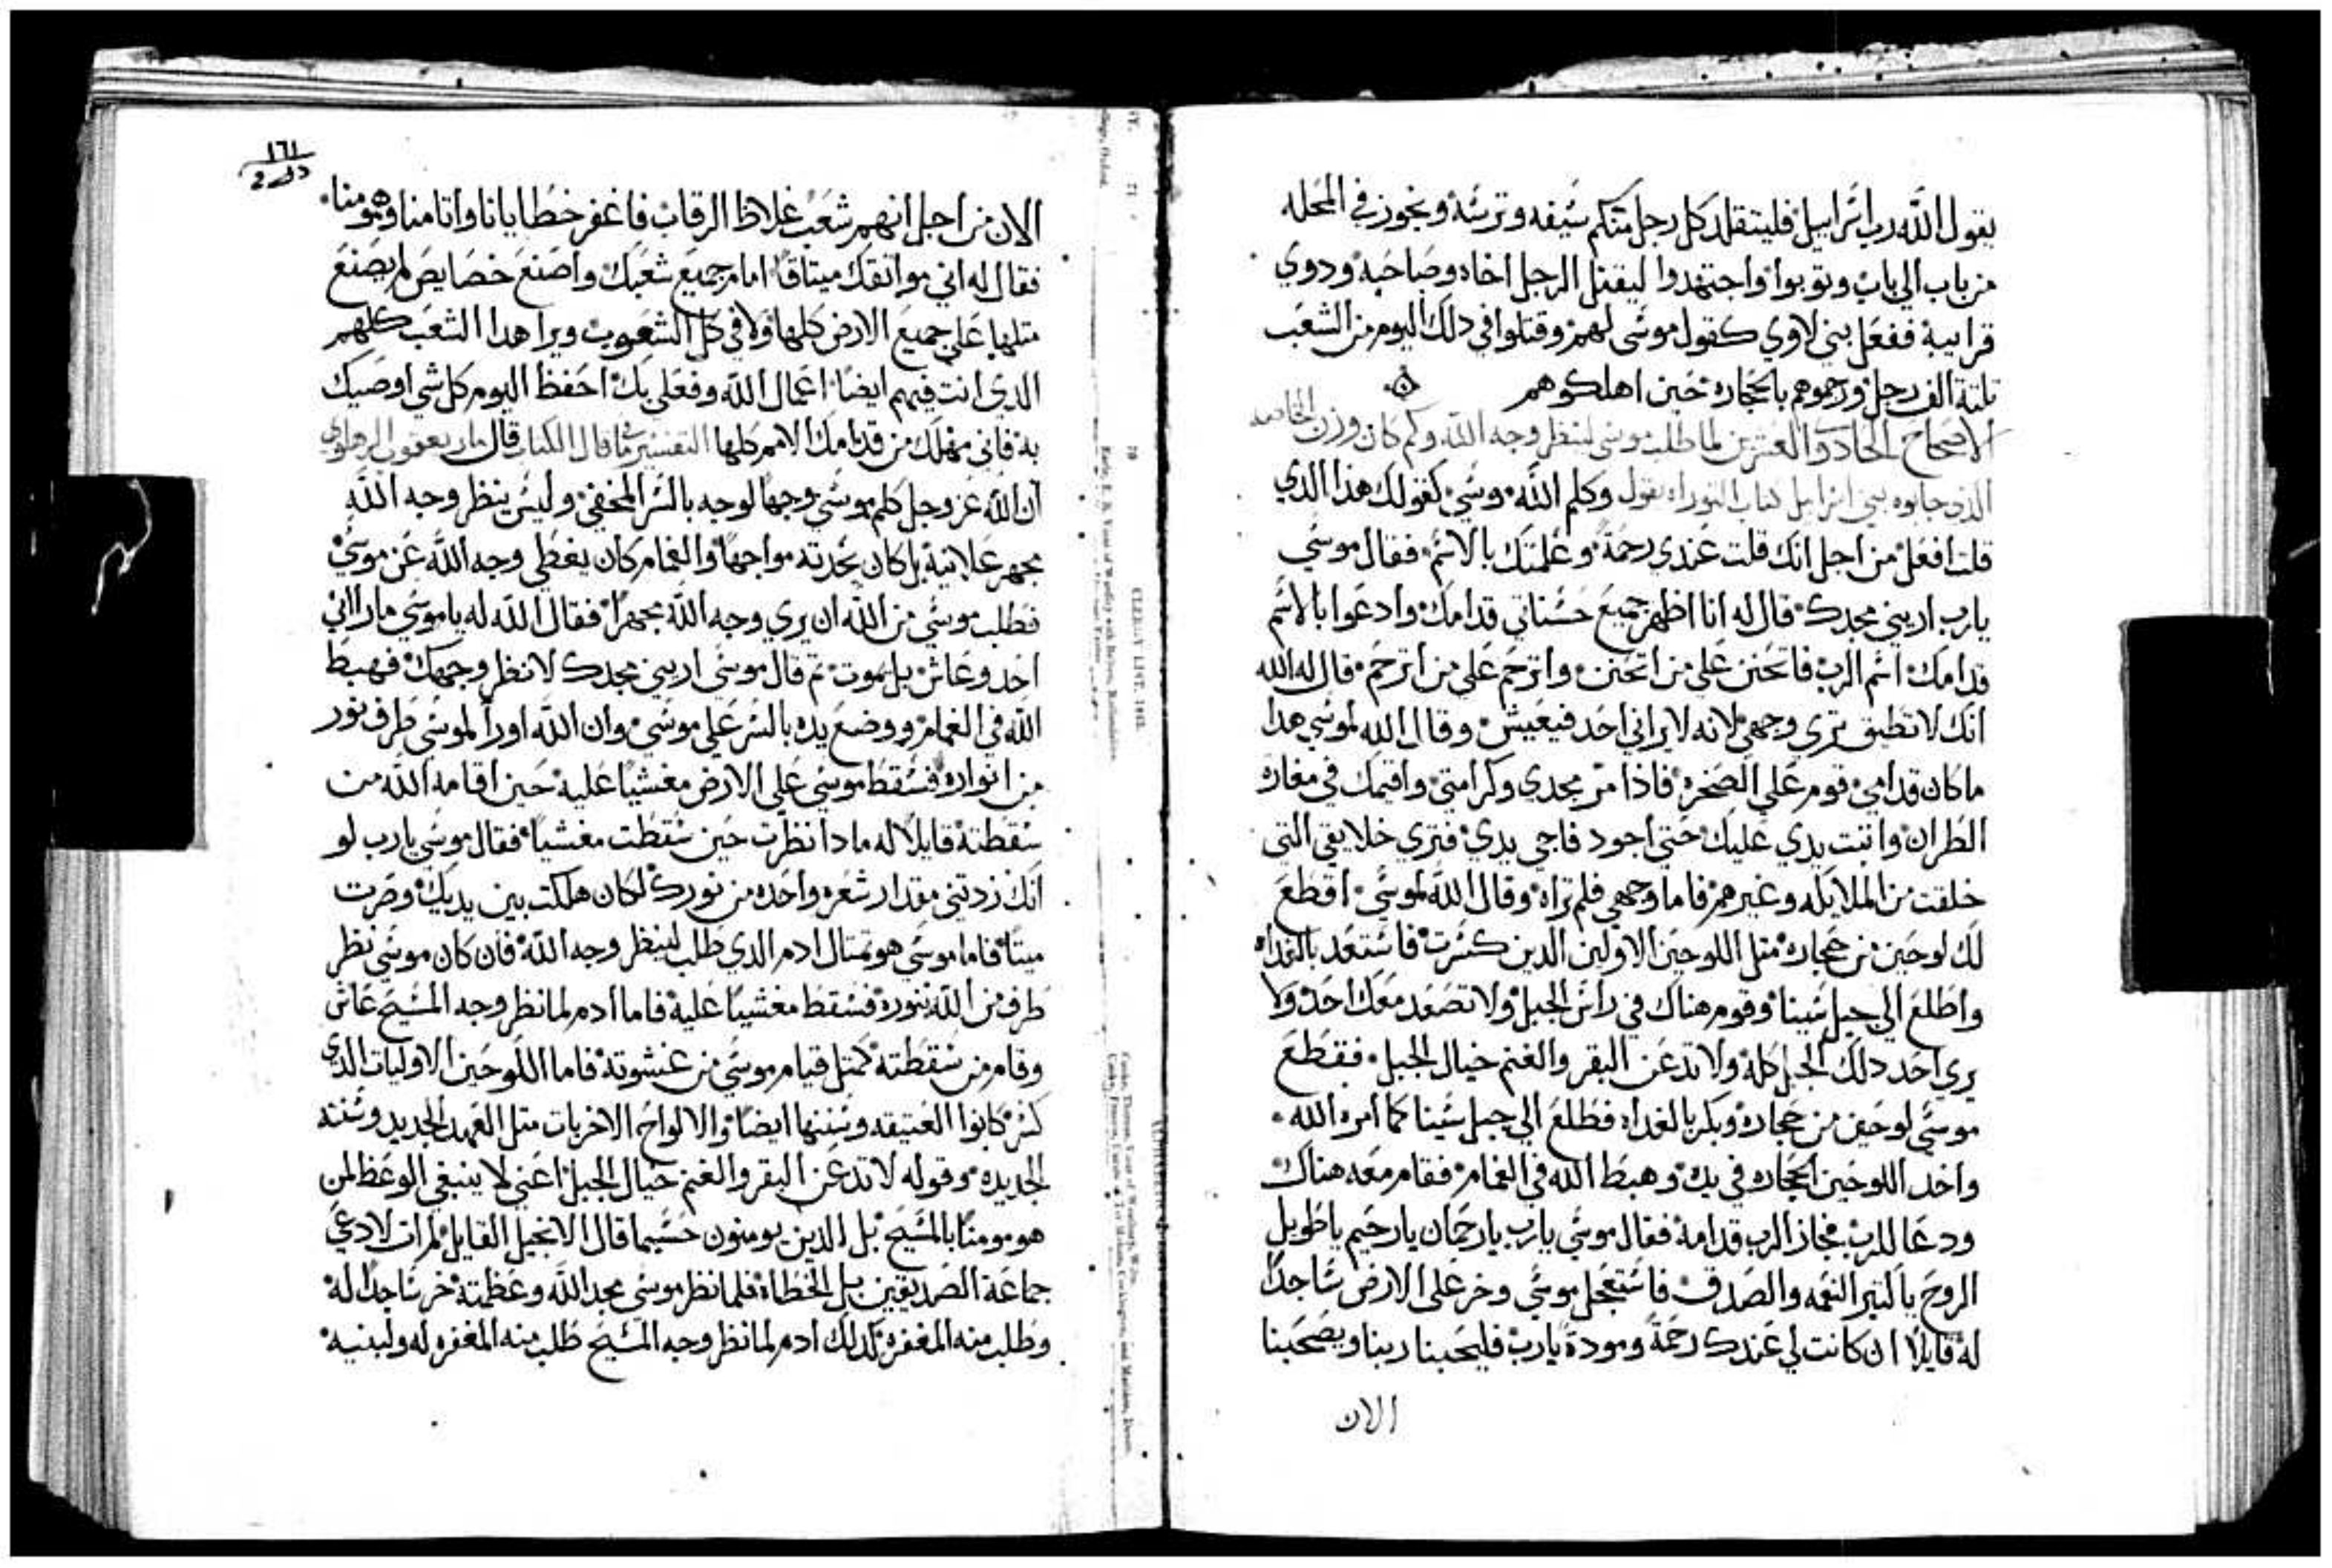 يقول الله رب اسراييل فليتقلد كل رجل منكم سيفه وترسه ويجوز في المحله
من باب الي باب وتوبوا واجتهدوا ليقتل الرجل اخاه وصاحبه ودوي
قرابية ففعل بني لاوي كقول موسي لهم وقتلوا في دلك اليوم من الشعب
تلتة الف رجل ورجموهم بالحجاره حين اهلكوهم
الاصحاح الحاد والعشرين لما طلب موسي لينظر وجه الله وكم كان وزن
الذي جابوه بني اسراييل كتاب التوراه يقول وكلم الله موسي كقولك هذا الدي
قلت افعل من اجل انك قلت عندي رحمة وعلمتك بالاسم فقال موسي
يارب اريني مجدك قال له انا اظهر جميع حسناتي قدامك وادعوا بالاسم
قدامك اسم الرب فاتحنن علي من اتحنن واترحم علي من اترحم قال له الله
انك لا تطيق تري وجهي لانه لا يراني احد فيعيش وقال الله لموسي هدا
ماكان قدامي قوم علي الصخره فاذا مر مجدي وكرامتي واقيمك في مغارة
الطران واتبت يدي عليك حتي اجود فاجي يدي فتري خلايقي التي
خلقت من الملايكه وغيرهم فاما وجهي فلم تراه وقال الله لموسي اقطع
لك لوحين من حجاره متل اللوحين الاولين الدين كسرت فاستعد بالغداه
واطلع الي جبل سينا وقوم هناك في راس الجبل ولا تصعد معك احد ولا
يري احد دلك الجبل كله ولا تدعن البقر والغنم خيال الجبل فقطع
موسي لوحين من حجاره وبكر بالغداه فطلع الي جبل سينا كما امره الله
واخد اللوحين الحجاره في يده وهبط الله في الغمام فقام معه هناك
ودعا للرب فجاز الرب قدامه فقال موسي يارب يارحمان يارحيم ياطويل
الروح ياكتير النعمه والصدق فاستعجل موسي وخر علي الارض ساجدا
له قايلا ان كانت لي عندك رحمة ومودة يارب فليصحبنا ربنا ويصحبنا
الان
١٦١
الان من اجل انهم شعب غلاظ الرقاب فاغفر خطايانا واتامنا وهومنا
فقال له اني مواتقك ميتاقا امام جميع شعبك واصنع خصايص لم يصنع
متلها علي جميع الارض كلها ولا في كل الشعوب ويرا هدا الشعب كلهم
الدي انت فيهم ايضا اعمال الله وفعلي بك احفظ اليوم كل شي اوصيك
به فاني مهلك من قدامك الامم كلها التفسير قال الكتاب قال مار يعقوب الرهاوي
ان الله عز وجل كلم موسي وجها لوجه بالسر المخفي وليس ينظر وجه الله
بجهر علانية بل كان يحدته مواجها والغمام كان يغطي وجه الله عن موسي
فطلب موسي من الله ان يري وجه الله بجهرا فقال الله له ياموسي ماراني
احد وعاش بل يموت تم قال موسي اريني مجدك لانظر وجهك فهبط
الله في الغمام ووضع يده بالستر علي موسي وان الله اورا لموسي طرف نور
من انواره فسقط موسي علي الارض مغشيا عليه حين اقامه الله من
سقطته قايلا له مادا نظرت حين سقطت مغشيا فقال موسي يارب لو
انك زدتني مقدار شعره واحده من نورك لكان هلكت بين يديك وصرت
ميتا فاما موسي هو تمتال ادم الدي طلب لينظر وجه الله فان كان موسي نظر
طرف من الله بنوره فسقط مغشيا عليه فاما ادم لما نظر وجه المسيح عاش
وقام من سقطته كمتل قيام موسي من غشوته فاما اللوحين الاوليات الدي
كسر كانوا العتيقه وسننها ايضا والالواح الاخريات متل العهد الجديد وسننه
الجديده وقوله لا تدعن البقر والغنم خيال الجبل اعني لا ينبغي الوعظ لمن
هو مومنا بالمسيح بل الدين يومنون حسبما قال الانجيل القايل لم ات لادعي
جماعة الصديقين بل الخطاه فلما نظر موسي مجد الله وعظمته خر ساجدا له
وطلب منه المغفره كدلك ادم لما نظر وجه المسيح طلب منه المغفره له ولبنيه